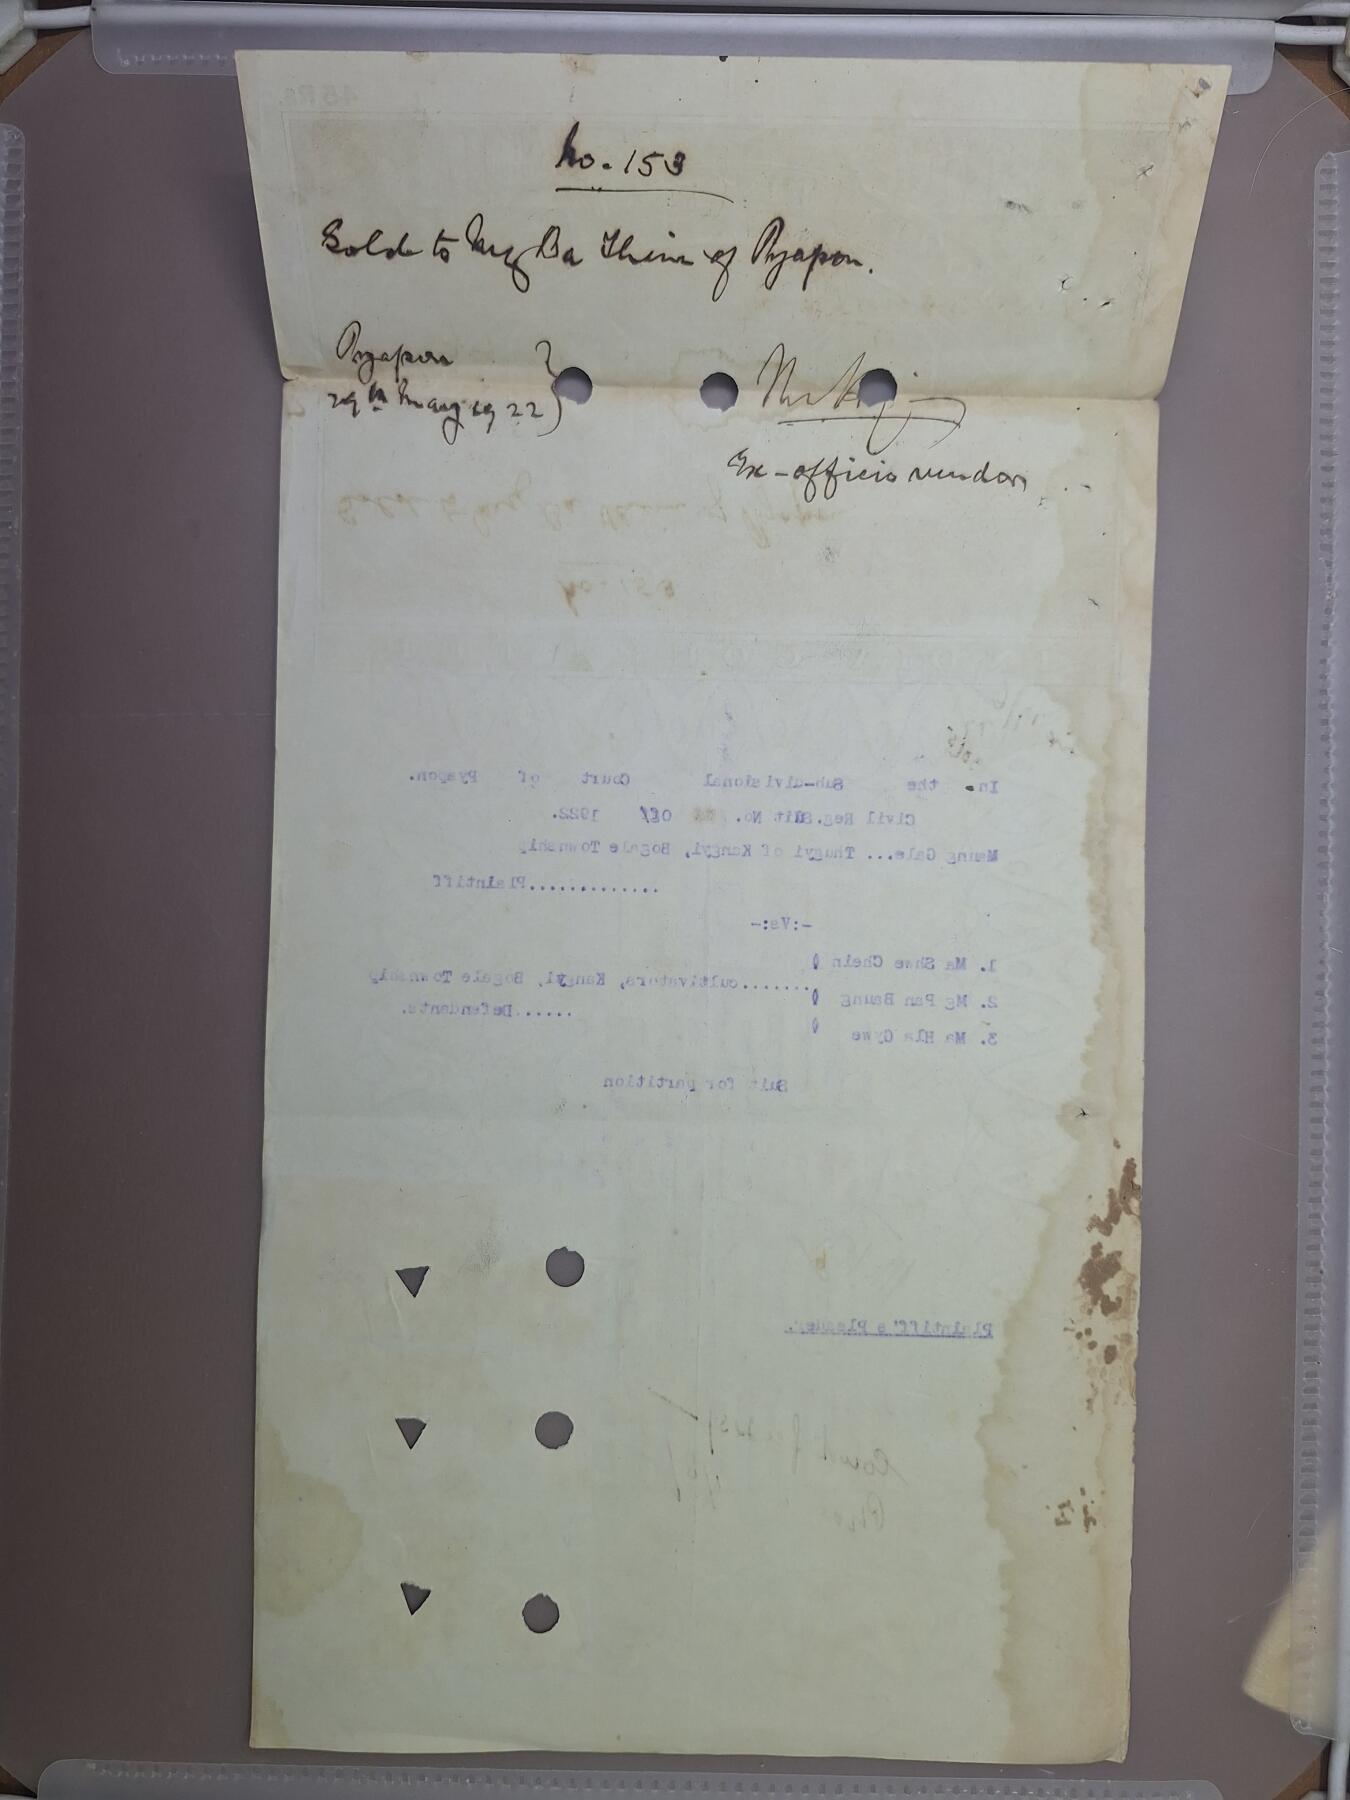 No. 153
Sold to Mg Ba Thein of Pyapon.
Pyapon
29th May 1922
Ex-officio vendor
In the Sub-divisional Court of Pyapon.
Civil Reg. Suit No. Of 1922.
Maung Gale... Thugyi of Kangyi, Bogale Township
.............Plaintiff
-:Vs:-
1. Ma Shwe Chein
.......cultivators, Kangyi, Bogale Township
2. Mg Pan Baung
......Defendants.
3. Ma Hla Gywe
Suit for partition
Plaintiff's Pleader.